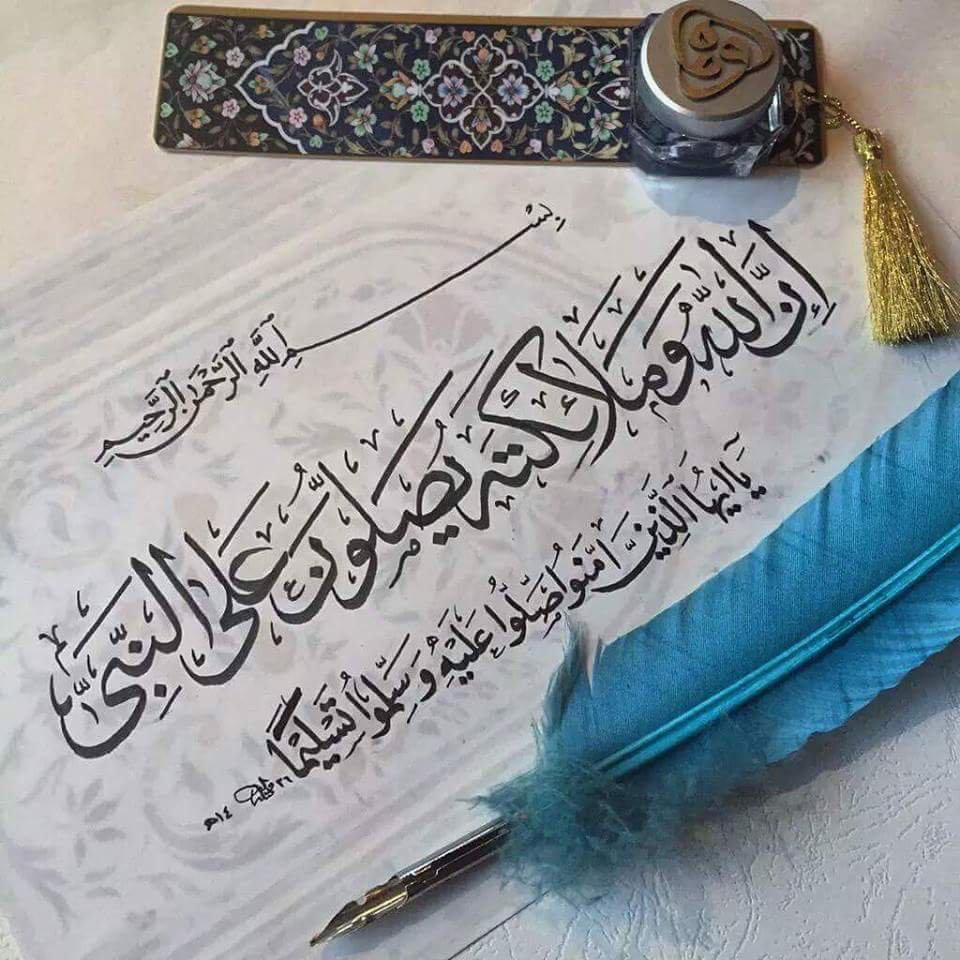 بِسْمِ ٱللَّهِ ٱلرَّحْمَٰنِ ٱلرَّحِيمِ
إِنَّ اللَّهَ وَمَلَائِكَتَهُ يُصَلُّونَ عَلَى النَّبِيِّ
يَا أَيُّهَا الَّذِينَ آمَنُوا صَلُّوا عَلَيْهِ وَسَلِّمُوا تَسْلِيمًا